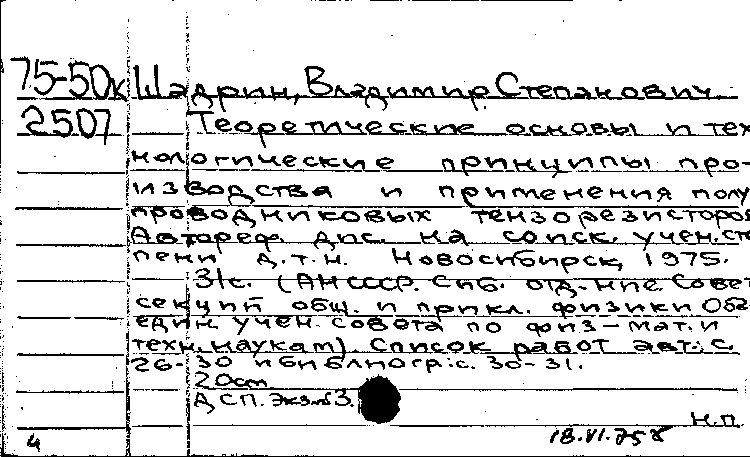 75-50к Шадрин, Владимир Степанович.
2507 Теоретические основы и тех
нологические принципы про-
изводства и применения полу
проводниковых тензорезисторов
Автореф. дис. на соиск. учен. сте
пени д.т.н. Новосибирск, 1975.
31с. (АН СССР. Сиб. отд-ние. Совет
секций общ. и прикл. физики Объ
един. учен. совета по физ-мат. и
техн. наукам). Список работ авт.: с.
26-30 и библиогр.: с. 30-31.
20см.
ДСП. Экз. №3.
Н.П.
4 18.VI.75